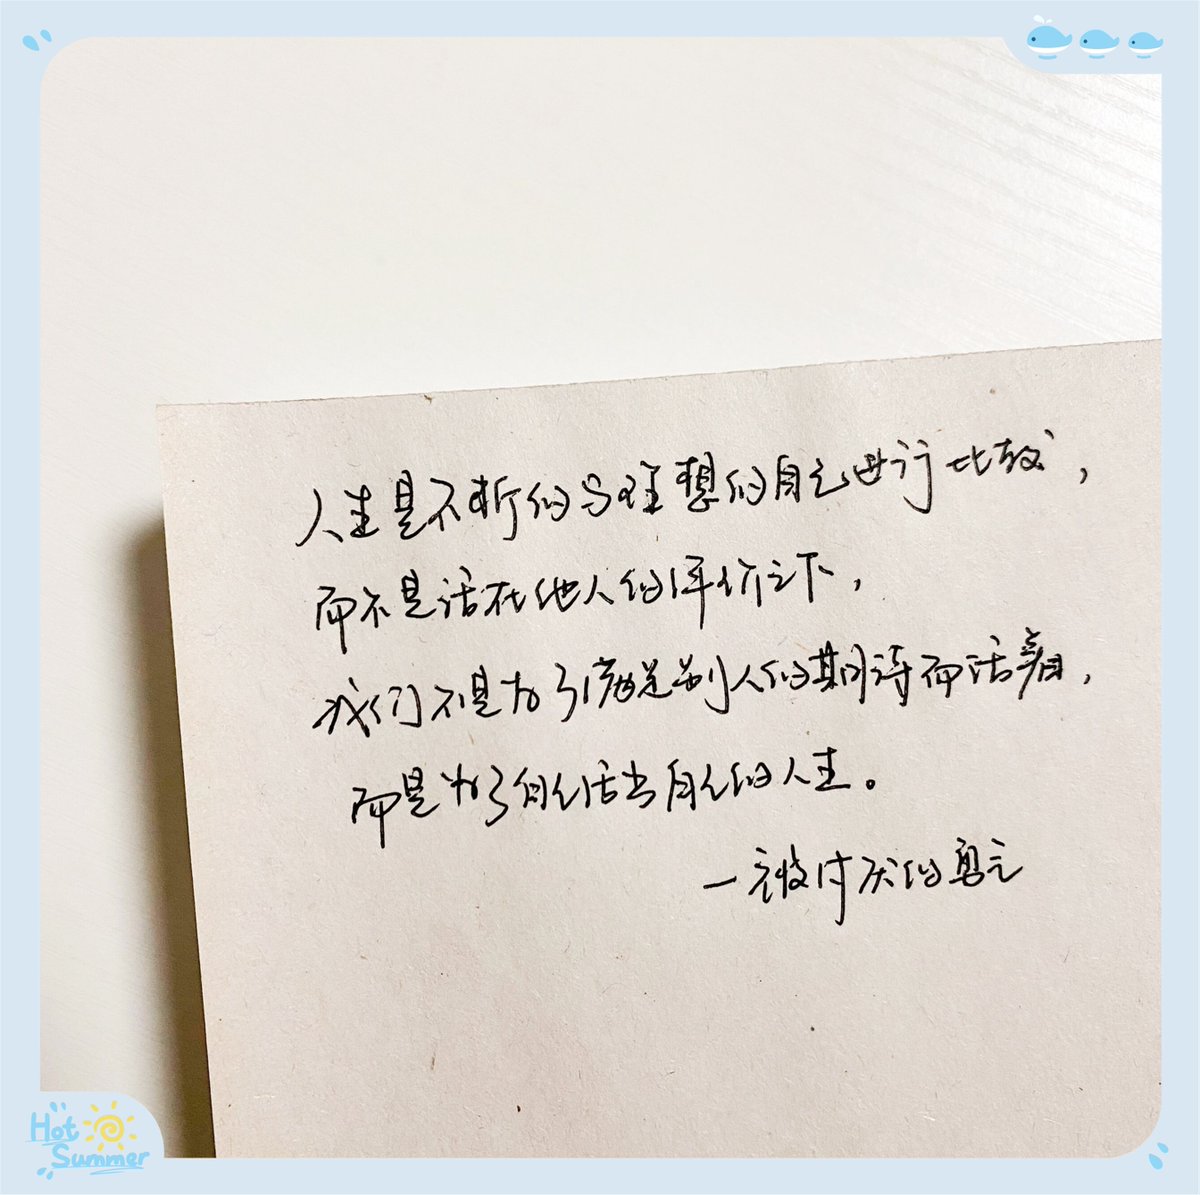 人生是不断的与理想的自己进行比较，
而不是活在他人的评价之下，
我们不是为了满足别人的期待而活着，
而是为了自己活出自己的人生。
一被讨厌的勇气
Hot
Summer